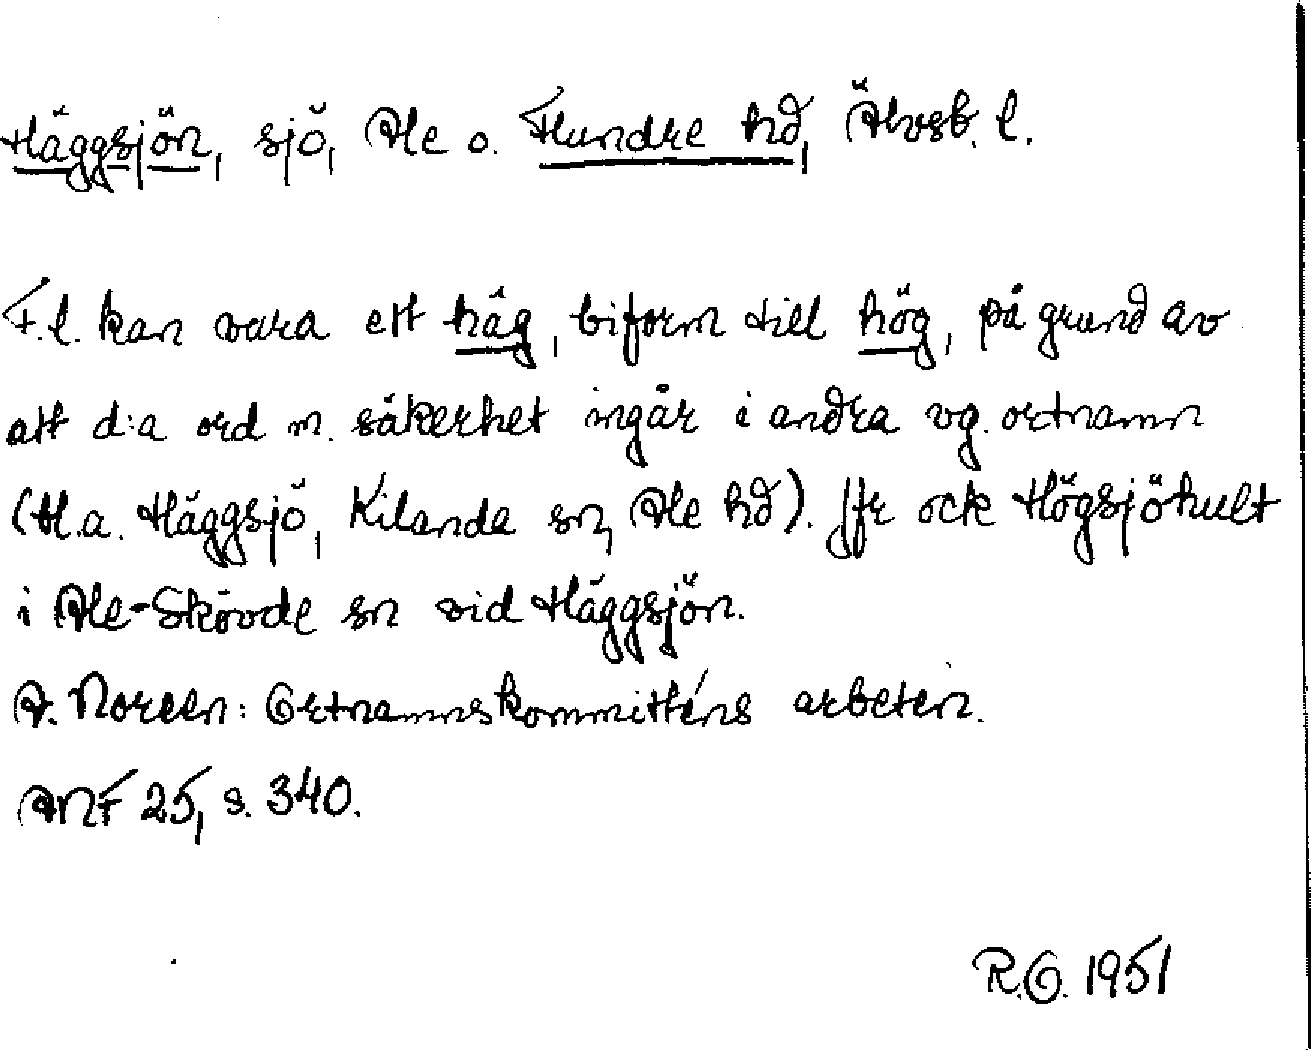 Häggsjön, sjö, Ale o. Flundre hd, Älvsb. l.
F.l. kan vara ett häg, biform till hög, på grund av
att d:a ord m. säkerhet ingår i andra vg. ortnamn
(Bl.a. Häggsjö, Kilanda sn, Ale hd). Jfr ock Högsjöhult
i Ale-Skövde sn vid Häggsjön.
A. Noreen: Ortnamnskommitténs arbeten.
ANF 25, s. 340.
R.O. 1951